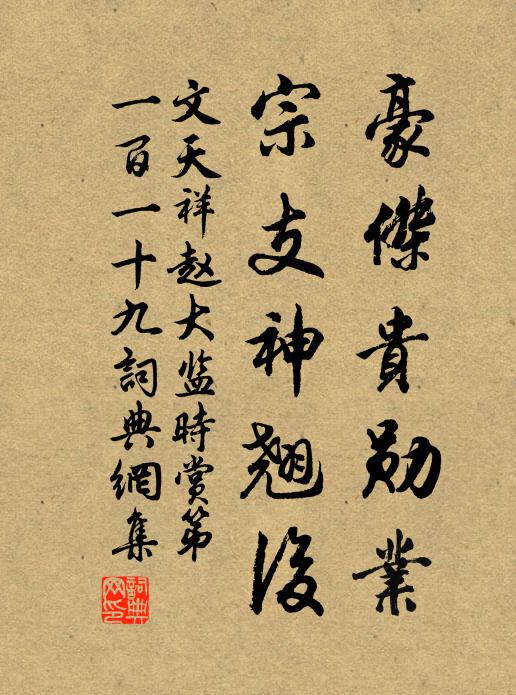 豪傑貴勛業
宗支神翹後
文天祥趙大监時賞第
一百一十九詞典網集
詞典网印